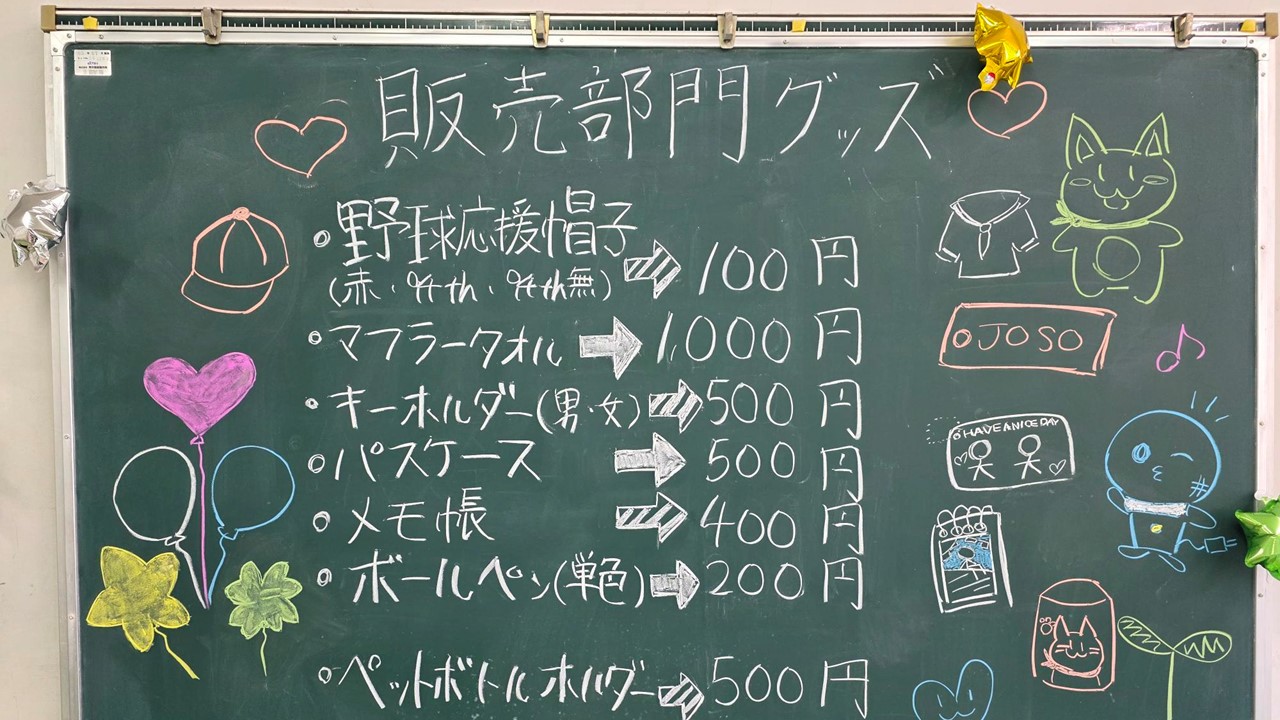 販売部門グッズ
・野球応援帽子 ⇒ 100円
(赤・94th・94th無)
・マフラータオル ⇒ 1,000円
・キーホルダー(男・女) ⇒ 500円
・パスケース ⇒ 500円
・メモ帳 ⇒ 400円
・ボールペン(単色) ⇒ 200円
・ペットボトルホルダー ⇒ 500円
JOSO
HAVE A NICE DAY